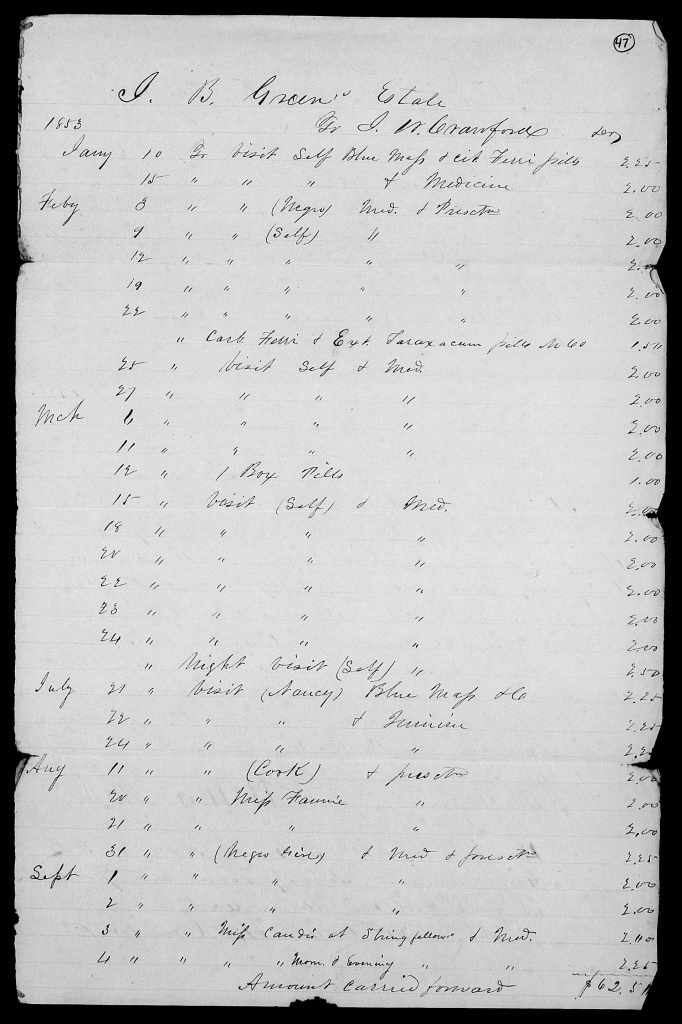 47
J. B. Green's Estate
1853 To J. W. Crawford Dr
Jany 10 To Visit Self Blue Mass & cit Ferri pills 2.25
15 " " " & Medicine 2.00
Feby 8 " " (Negro) Med. & Prescptn 2.00
9 " " (Self) " 2.00
12 " " " " " 2.0
19 " " " " " 2.00
22 " " " " " 2.00
" Carb Ferri & Ext Taraxacum pills No 60 1.50
25 " Visit Self & Med. 2.00
27 " " " " 2.00
Mch 6 " " " " 2.00
11 " " " " 2.00
12 " 1 Box Pills 1.00
15 " Visit (Self) & Med. 2.00
18 " " " " 2.00
20 " " " " 2.00
22 " " " " 2.00
23 " " " " 2.00
24 " " " " 2.00
" Night Visit (Self) " 2.50
July 21 " Visit (Nancy) Blue Mass &c 2.25
22 " " " & Quinine 2.25
24 " " " " 2.25
Aug 11 " " (Cook) & prescptn 2.00
20 " " Miss Fannie " 2.00
21 " " " " 2.00
31 " " (Negro Girl) & Med & prescptn 2.25
Sept 1 " " " " 2.00
2 " " " " 2.00
3 " " Miss Candis at Stringfellows & Med. 2.00
4 " " " " Morn. & Evening " " 2.25
Amount carried forward $62.50